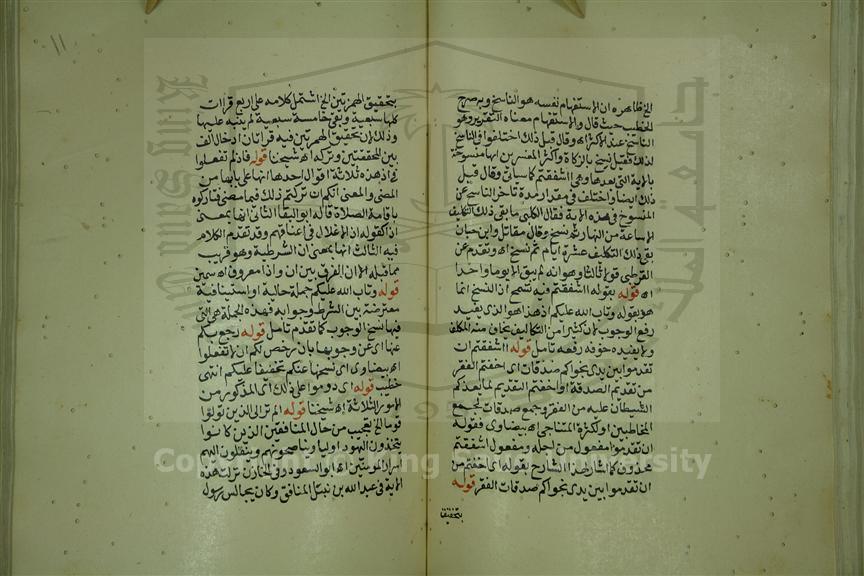 ١١
الخ ظاهره ان الاستفهام نفسه هو الناسخ وبه صرح
الخطيب حيث قال والاستفهام معناه التقرير وهو
الناسخ عند الاكثر اه وقال قبل ذلك اختلفوا في الناسخ
لذلك فقيل نسخ بالزكاة واكثر المفسرين انها منسوخة
بالاية التي بعدها وهي أاشفقتم كما سيأتي وقال قيل
ذلك ايضا واختلف في مقدار مدة تاخر الناسخ عن
المنسوخ في هذه الاية فقال الكلبي ما بقي ذلك التكليف
الا ساعة من النهار ثم نسخ وقال مقاتل وابن حيان
بقي ذلك التكليف عشرة ايام ثم نسخ اه وتقدم عن
القرطبي قولا ثالثا وهو انه لم يبق الا يوما واحدا
اه قوله بقوله أاشفقتم فيه تسمح اذ النسخ انما
هو بقوله وتاب الله عليكم اذ هذا هو الذي يفيد
رفع الوجوب لان كثيرا من التكاليف يخاف منه المكلف
ولا يفيده خوفه رفعه تامل قوله أاشفقتم ان
تقدموا بين يدي نجواكم صدقات اي اخفتم الفقر
من تقديم الصدقة او اخفتم التقديم لما يعدكم
الشيطان عليه من الفقر وجمع صدقات لجمع
المخاطبين او لكثرة المتناجي اه بيضاوي فقوله
ان تقدموا مفعول من اجله ومفعول اشفقتم
محذوف كما اشار له الشارح بقوله اي اخفتم من
ان تقدموا بين يدي نجواكم صدقات الفقر قوله
بتحقيق
بتحقيق الهمزتين الخ اشتمل كلامه على اربع قرات
كلها سبعية وبقي خامسة سبعية لم ينبه عليها
وذلك لان تحقيق الهمزتين فيه قراتان ادخال الف
بين المحققتين وتركه اه شيخنا قوله فاذ لم تفعلوا
في اذ هذه ثلاثة اقوال احدها انها على بابها من
المضي والمعنى انكم ان تركتم ذلك فيما مضى فتداركوه
باقامة الصلاة قاله ابو البقا الثاني انها بمعنى
اذا كقوله اذ الاغلال في اعناقهم وقد تقدم الكلام
فيه الثالث انها بمعنى ان الشرطية وهو قريب
مما قبله الا ان الفرق بين ان واذا معروف اه سمين
قوله وتاب الله عليكم جملة حالية او استئنافية
معترضة بين الشرط وجوابه فهذه الجملة هي التي
فيها نسخ الوجوب كما تقدم تامل قوله رجع بكم
عنها اي عن وجوبها بان رخص لكم ان لا تفعلوا
اه بيضاوي اي نسخها عنكم تخفيفا عليكم انتهى
خطيب قوله اي دوموا على ذلك اي المذكور من
الامور الثلاثة اه شيخنا قوله الم تر الى الذين تولوا
قوما الخ تعجيب من حال المنافقين الذين كانوا
يتخذون اليهود اوليا ويناصحونهم وينقلون اليهم
اسرار المومنين اه ابو السعود وفي الخازن نزلت هذه
الاية في عبد الله بن نبتل المنافق وكان يجالس رسول